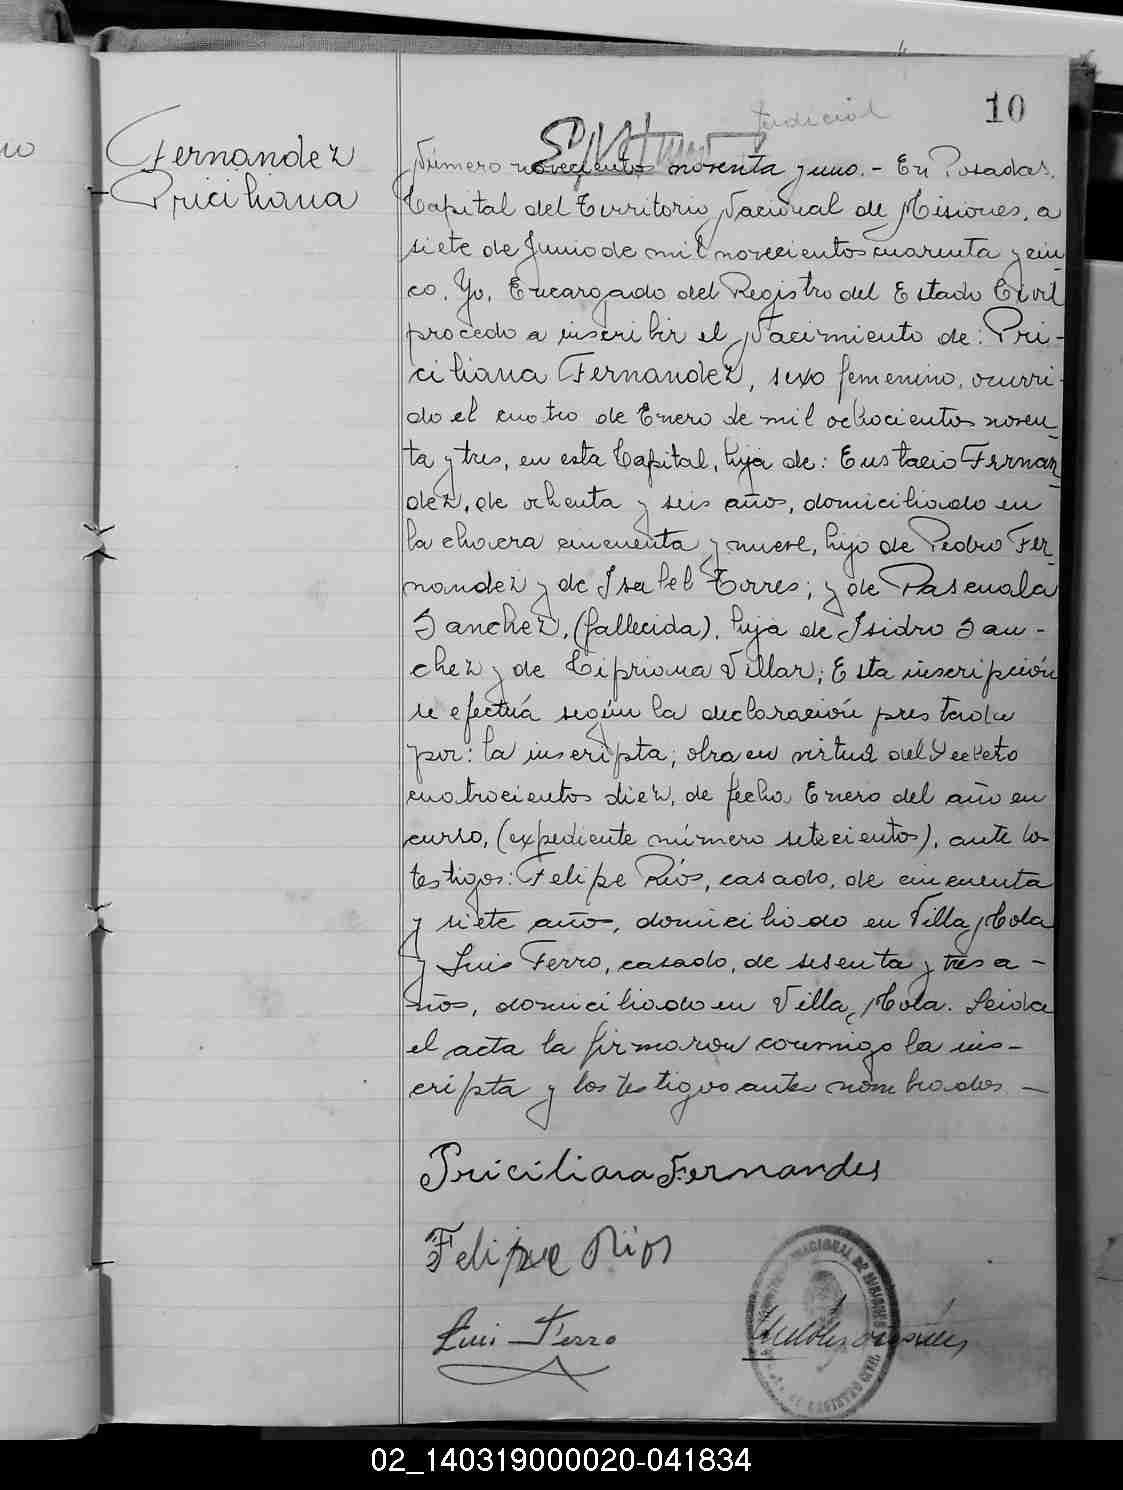 10
Judicial
Fernandez
Priciliana
Número novecientos noventa y uno.- En Posadas,
Capital del Territorio Nacional de Misiones, a
siete de Junio de mil novecientos cuarenta y cin-
co. Yo, Encargado del Registro del Estado Civil
procedo a inscribir el Nacimiento de: Pri-
ciliana Fernandez, sexo femenino, ocurri-
do el cuatro de Enero de mil ochocientos noven-
ta y tres, en esta Capital, hija de: Eustacio Fernan-
dez, de ochenta y seis años, domiciliado en
la chacra cincuenta y nueve, hijo de Pedro Fer-
nandez y de Isabel Torres; y de Pascuala
Sanchez, (fallecida), hija de Isidro San-
chez y de Cipriana Villar; Esta inscripción
se efectúa según la declaración prestada
por: la inscripta; obra en virtud del Decreto
cuatrocientos diez, de fecha Enero del año en
curso, (expediente número setecientos), ante los
testigos: Felipe Ríos, casado, de cincuenta
y siete años, domiciliado en Villa Mola
y Luis Ferro, casado, de sesenta y tres a-
ños, domiciliado en Villa Mola. Leida
el acta la firmaron conmigo la ins-
cripta y los testigos antes nombrados.-
Priciliana Fernandes
Felipe Rios
Luis Ferro
NACIONAL DE MISIONES
REGISTRO CIVIL
02_140319000020-041834